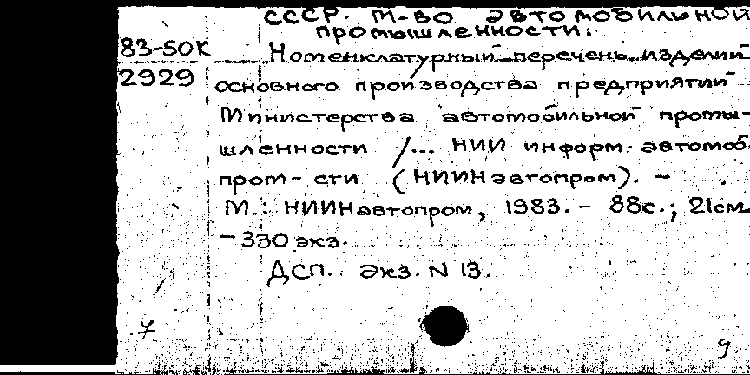 СССР. М-во автомобильной
промышленности.
83-50К
Номенклатурный перечень изделий
2929
основного производства предприятий
Министерства автомобильной промы-
шленности /... НИИ информ. автомоб.
пром-сти (НИИНавтопром). -
М.: НИИНавтопром, 1983. - 88с.; 21см.
- 330 экз.
ДСП. Экз. N 13.
7
9